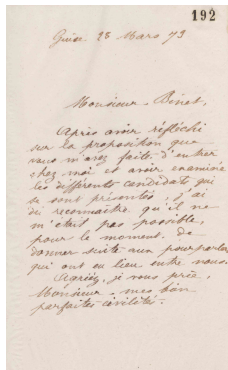 192
Guise 28 Mars 79
Monsieur Binet,
Après avoir réfléchi
sur la proposition que
vous m'avez faite d'entrer
chez moi et avoir examiné
les différents candidats qui
se sont présentés, j'ai
dû reconnaître qu'il ne
m'était pas possible,
pour le moment, de
donner suite aux pourparlers
qui ont eu lieu entre nous.
Agréez, je vous prie,
Monsieur mes bien
parfaites civilités.